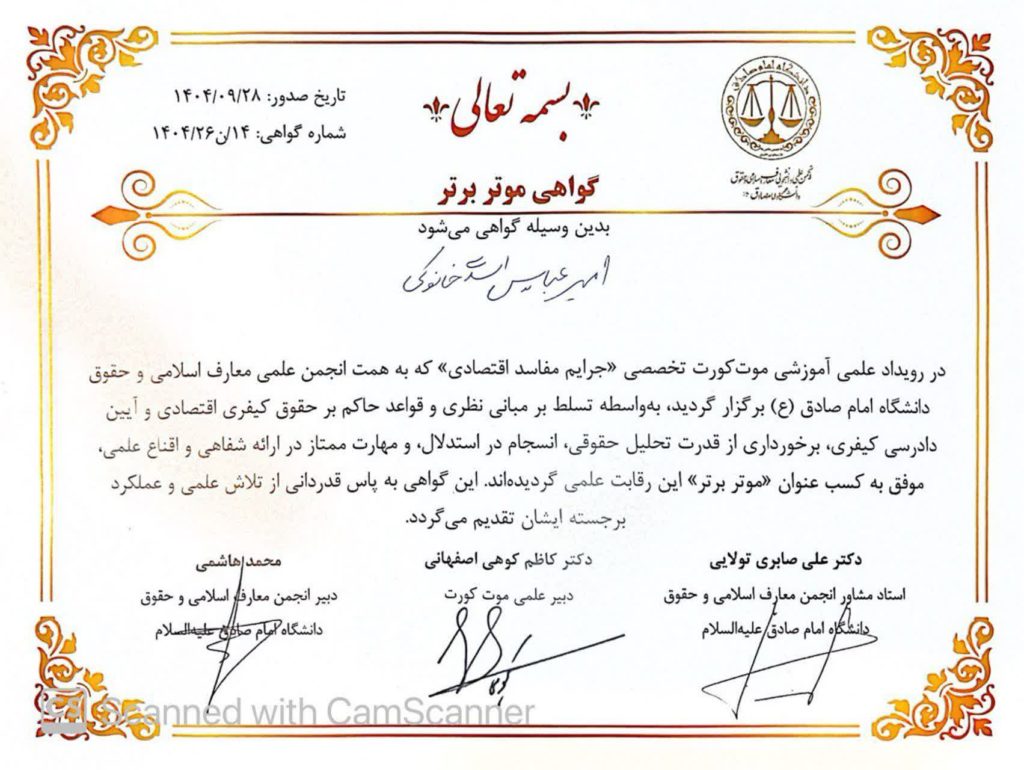 بسمه تعالی
تاریخ صدور: ۱۴۰۴/۰۹/۲۸
شماره گواهی: ۱۴/ن۱۴۰۴/۲۶
دانشگاه امام صادق
گواهی موتر برتر
بدین وسیله گواهی می‌شود
امیر عباس خانوکی
در رویداد علمی آموزشی موت‌کورت تخصصی «جرایم مفاسد اقتصادی» که به همت انجمن علمی معارف اسلامی و حقوق
دانشگاه امام صادق (ع) برگزار گردید، به‌واسطه تسلط بر مبانی نظری و قواعد حاکم بر حقوق کیفری اقتصادی و آیین
دادرسی کیفری، برخورداری از قدرت تحلیل حقوقی، انسجام در استدلال، و مهارت ممتاز در ارائه شفاهی و اقناع علمی،
موفق به کسب عنوان «موتر برتر» این رقابت علمی گردیده‌اند. این گواهی به پاس قدردانی از تلاش علمی و عملکرد
برجسته ایشان تقدیم می‌گردد.
دکتر علی صابری تولایی
استاد مشاور انجمن معارف اسلامی و حقوق
دانشگاه امام صادق علیه‌السلام
دکتر کاظم کوهی اصفهانی
دبیر علمی موت کورت
محمد هاشمی
دبیر انجمن معارف اسلامی و حقوق
دانشگاه امام صادق علیه‌السلام
CS Scanned with CamScanner